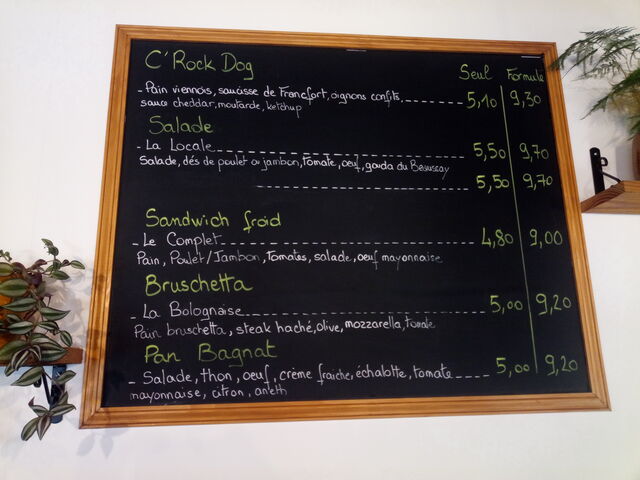 C'Rock Dog Seul Formule
- Pain viennois, saucisse de Francfort, oignons confits, 5,10 9,30
sauce cheddar, moutarde, ketchup
Salade
- La Locale 5,50 9,70
Salade, dés de poulet ou jambon, tomate, oeuf, gouda du Beaussay
5,50 9,70
Sandwich froid
- Le Complet 4,80 9,00
Pain, Poulet/Jambon, tomates, salade, oeuf mayonnaise
Bruschetta
- La Bolognaise 5,00 9,20
Pain bruschetta, steak haché, olive, mozzarella, tomate
Pan Bagnat
- Salade, thon, oeuf, crème fraiche, échalotte, tomate 5,00 9,20
mayonnaise, citron, aneth